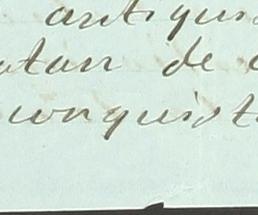 antiqui
tan de
conquist